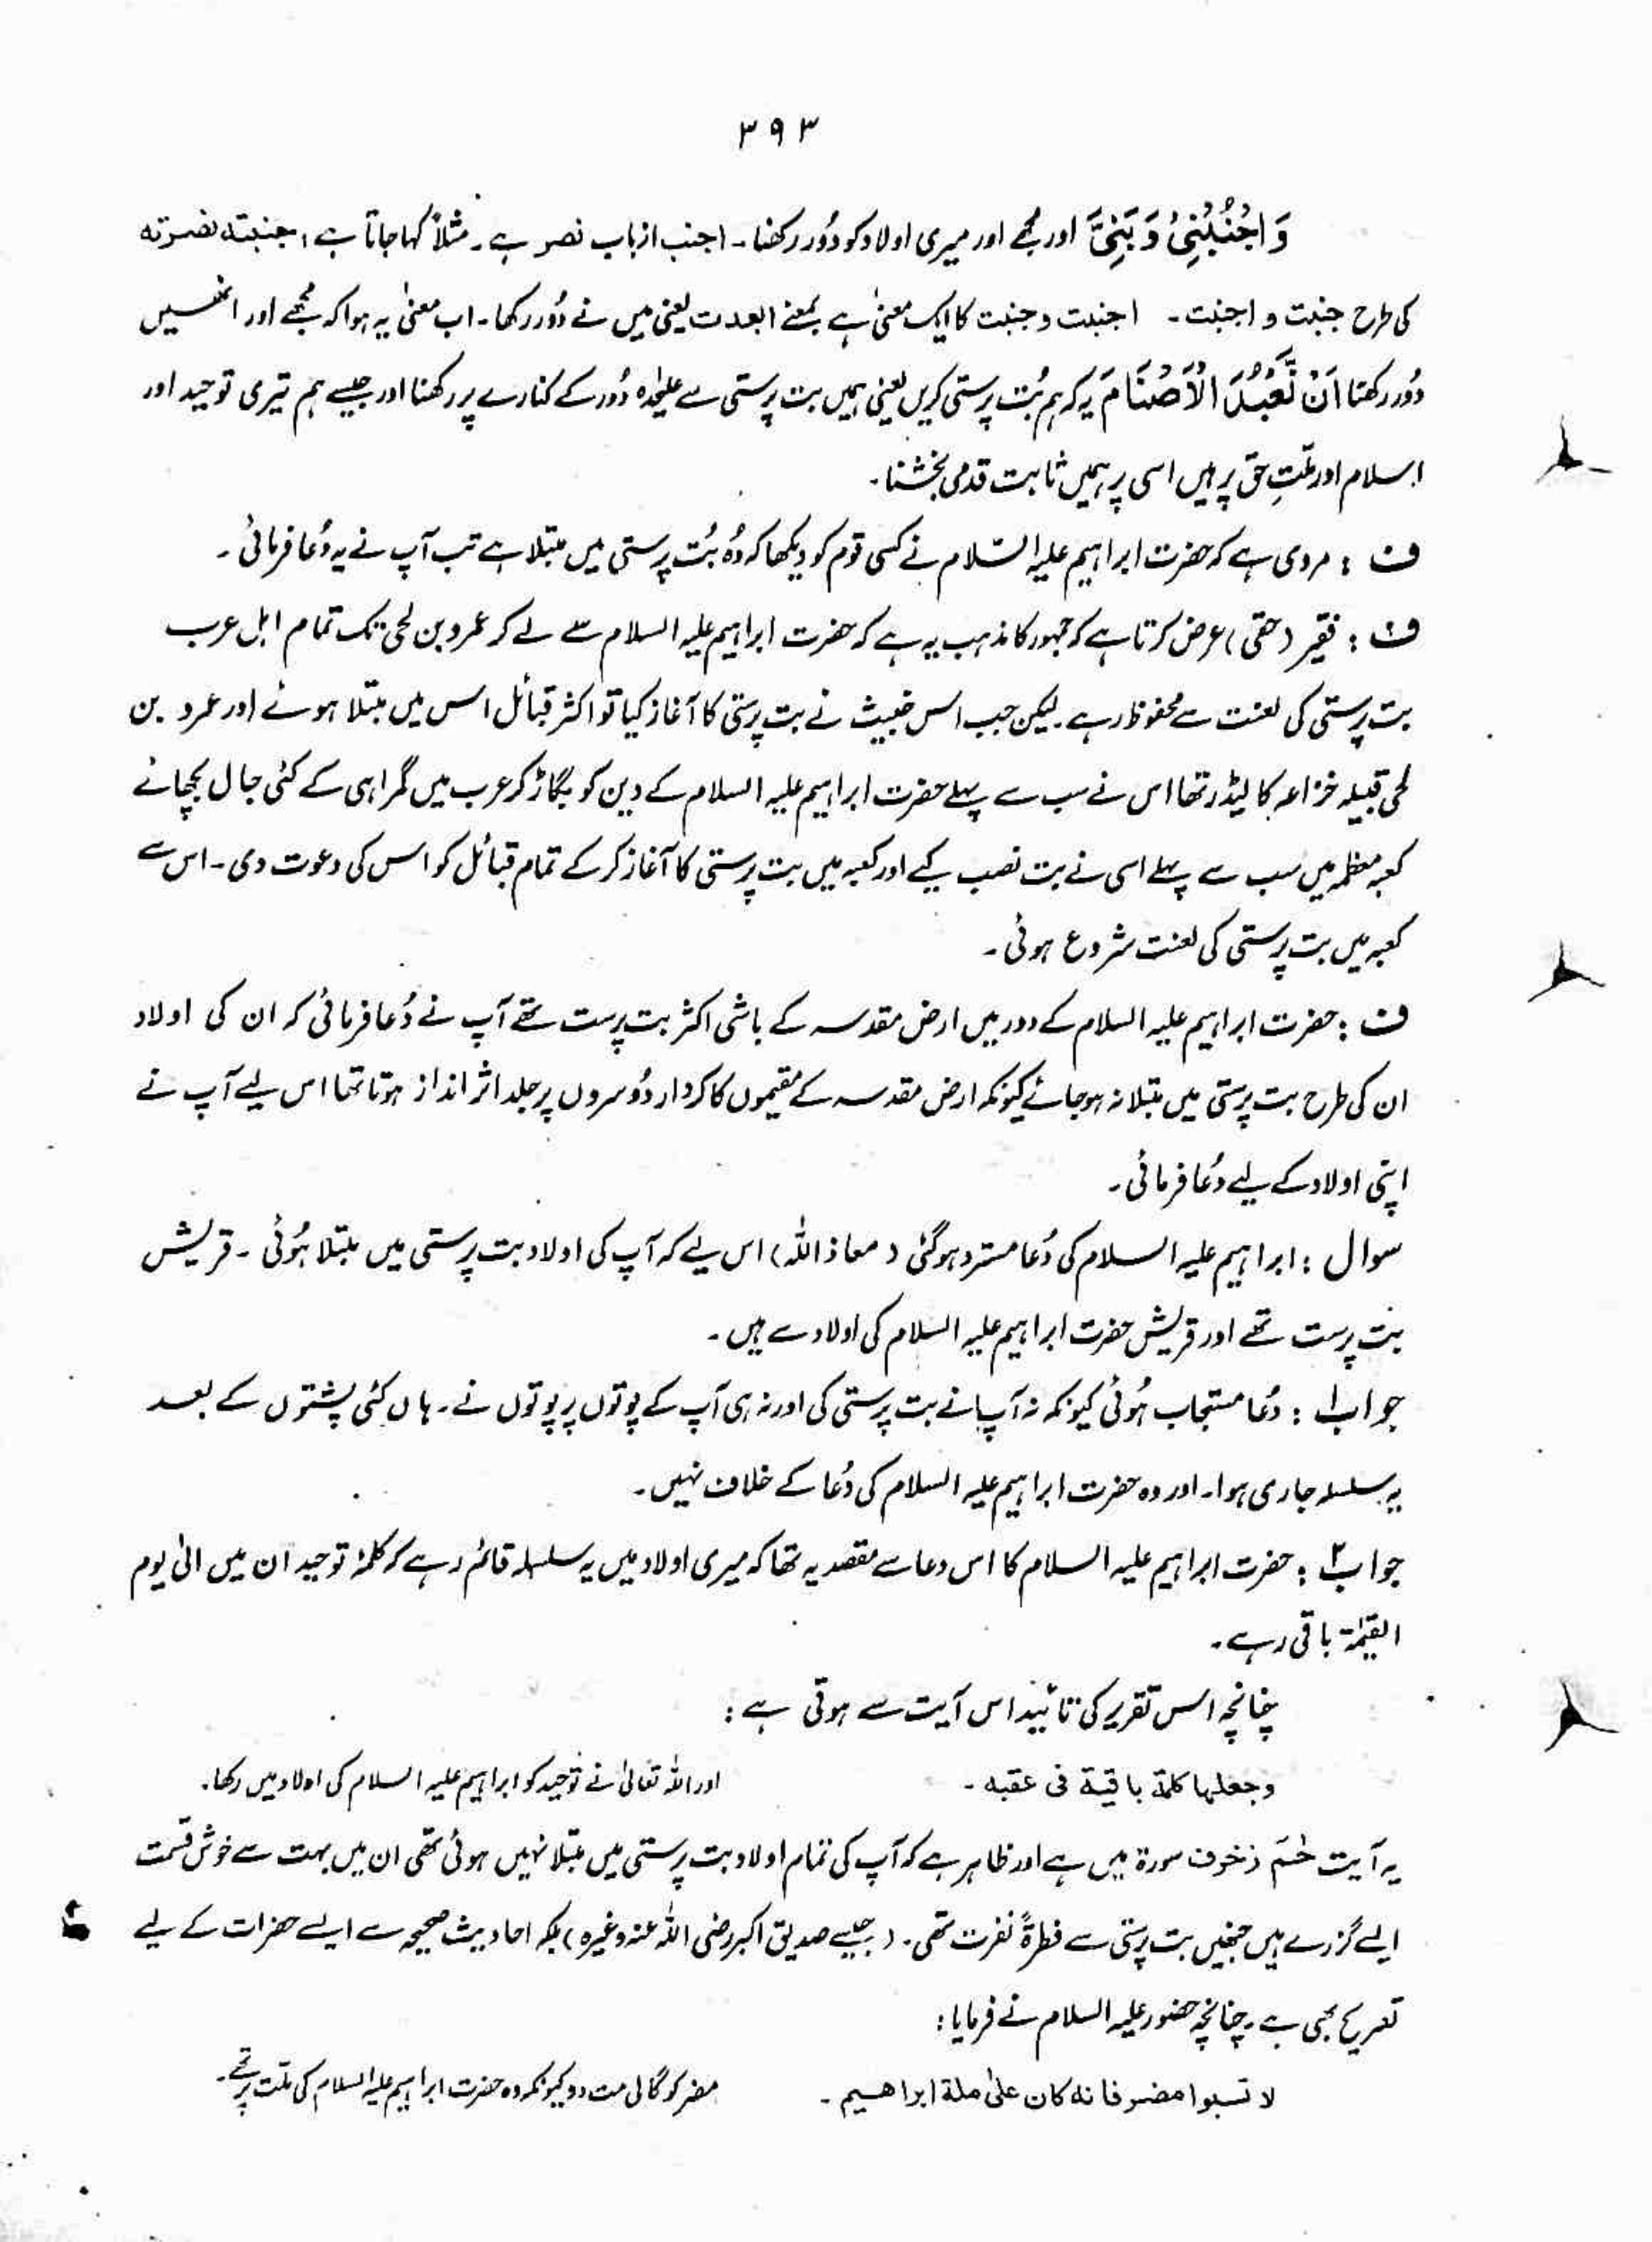 ۳۹۳
وَ اجْنُبْنِیْ وَ بَنِیَّ اور مجھے اور میری اولاد کو دُور رکھنا۔ اجنب از باب نصر ہے۔ مثلاً کہا جاتا ہے، جنبتہ نصرتہ
کی طرح جنبت و اجنبت۔ اجنبت و جنبت کا ایک معنیٰ ہے بمعنے ابعدت یعنی میں نے دُور رکھا۔ اب معنیٰ یہ ہوا کہ مجھے اور انھیں
دُور رکھنا اَنْ نَّعْبُدَ الْاَصْنَامَ یہ کہ ہم بُت پرستی کریں یعنی ہمیں بت پرستی سے علیحدہ دُور کے کنارے پر رکھنا اور جیسے ہم تیری توحید اور
اسلام اور ملّتِ حق پر ہیں اسی پر ہمیں ثابت قدمی بخشنا۔
ف : مروی ہے کہ حضرت ابراہیم علیہ السّلام نے کسی قوم کو دیکھا کہ وُہ بُت پرستی میں مبتلا ہے تب آپ نے یہ دُعا فرمائی۔
ف : فقیر (حقی) عرض کرتا ہے کہ جمہور کا مذہب یہ ہے کہ حضرت ابراہیم علیہ السلام سے لے کر عمرو بن لحی تک تمام اہل عرب
بت پرستی کی لعنت سے محفوظ رہے۔ لیکن جب اس خبیث نے بت پرستی کا آغاز کیا تو اکثر قبائل اس میں مبتلا ہوئے اور عمرو بن
لحی قبیلہ خزاعہ کا لیڈر تھا اس نے سب سے پہلے حضرت ابراہیم علیہ السلام کے دین کو بگاڑ کر عرب میں گمراہی کے کئی جال بچھائے
کعبہ معظمہ میں سب سے پہلے اسی نے بت نصب کیے اور کعبہ میں بت پرستی کا آغاز کر کے تمام قبائل کو اس کی دعوت دی۔ اس سے
کعبہ میں بت پرستی کی لعنت شروع ہوئی۔
ف : حضرت ابراہیم علیہ السلام کے دور میں ارض مقدسہ کے باشی اکثر بت پرست تھے آپ نے دُعا فرمائی کہ ان کی اولاد
ان کی طرح بت پرستی میں مبتلا نہ ہو جائے کیونکہ ارض مقدسہ کے مقیموں کا کردار دُوسروں پر جلد اثر انداز ہوتا تھا اس لیے آپ نے
اپنی اولاد کے لیے دُعا فرمائی۔
سوال : ابراہیم علیہ السلام کی دُعا مسترد ہوگئی (معاذ اللہ) اس لیے کہ آپ کی اولاد بت پرستی میں مبتلا ہُوئی۔ قریش
بت پرست تھے اور قریش حضرت ابراہیم علیہ السلام کی اولاد سے ہیں۔
جواب ۱ : دُعا مستجاب ہُوئی کیونکہ نہ آپ نے بت پرستی کی اور نہ ہی آپ کے پوتوں پرپوتوں نے۔ ہاں کئی پشتوں کے بعد
یہ سلسلہ جاری ہوا۔ اور وہ حضرت ابراہیم علیہ السلام کی دُعا کے خلاف نہیں۔
جواب ۲ : حضرت ابراہیم علیہ السلام کا اس دعا سے مقصد یہ تھا کہ میری اولاد میں یہ سلسلہ قائم رہے کہ کلمۂ توحید ان میں الیٰ یوم
القیٰمۃ باقی رہے۔
چنانچہ اس تقریر کی تائید اس آیت سے ہوتی ہے :
وجعلہا کلمۃ باقیۃ فی عقبہ۔ اور اللہ تعالیٰ نے توحید کو ابراہیم علیہ السلام کی اولاد میں رکھا۔
یہ آیت حٰمٓ زخرف سورۃ میں ہے اور ظاہر ہے کہ آپ کی تمام اولاد بت پرستی میں مبتلا نہیں ہوئی تھی ان میں بہت سے خوش قسمت
ایسے گزرے ہیں جنھیں بت پرستی سے فطرۃً نفرت تھی۔ (جیسے صدیق اکبر رضی اللہ عنہ وغیرہ) بلکہ احادیث صحیحہ سے ایسے حضرات کے لیے
تصریح بھی ہے۔ چنانچہ حضور علیہ السلام نے فرمایا :
لا تسبوا مضر فانہ کان علیٰ ملۃ ابراھیم۔ مضر کو گالی مت دو کیونکہ وہ حضرت ابراہیم علیہ السلام کی ملّت پر تھے۔